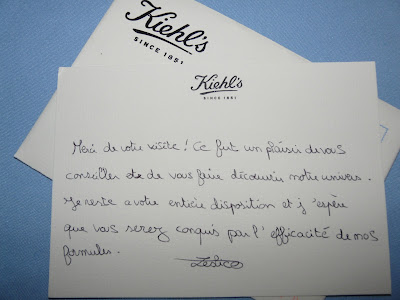 Kiehl's
SINCE 1851
Kiehl's
SINCE 1851
Merci de votre visite ! Ce fut un plaisir de vous
conseiller de vous faire découvrir notre univers.
Je reste a votre entière disposition et j'espère
que vous serez conquis par l'efficacité de nos
formules.